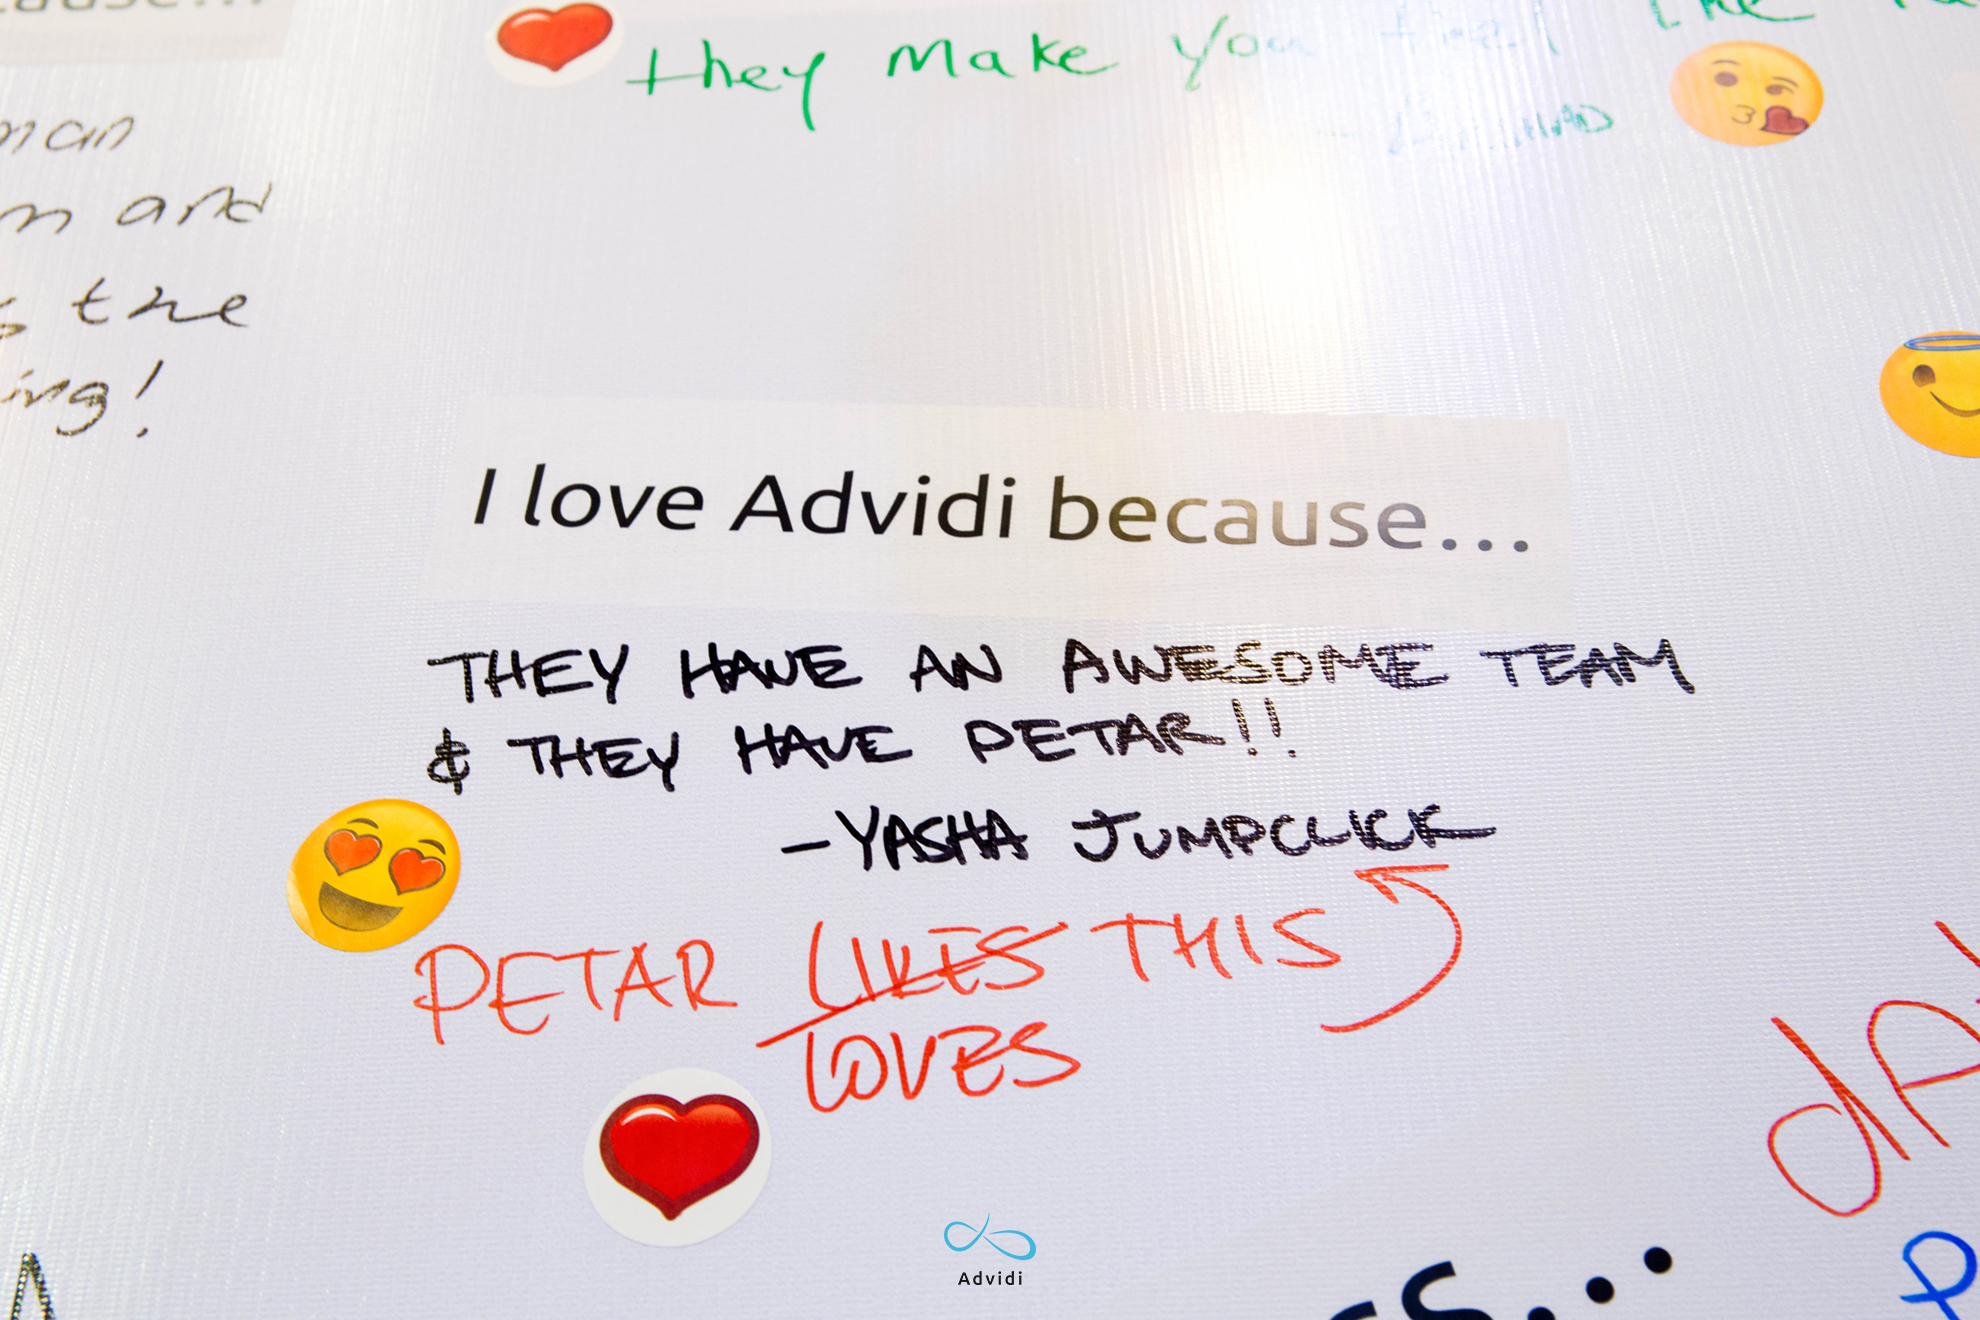 they make you feel the
man
and
the
I love Advidi because...
THEY HAVE AN AWESOME TEAM
& THEY HAVE PETAR!!
-YASHA JUMPCLICK
PETAR LIKES THIS
LOVES
Advidi